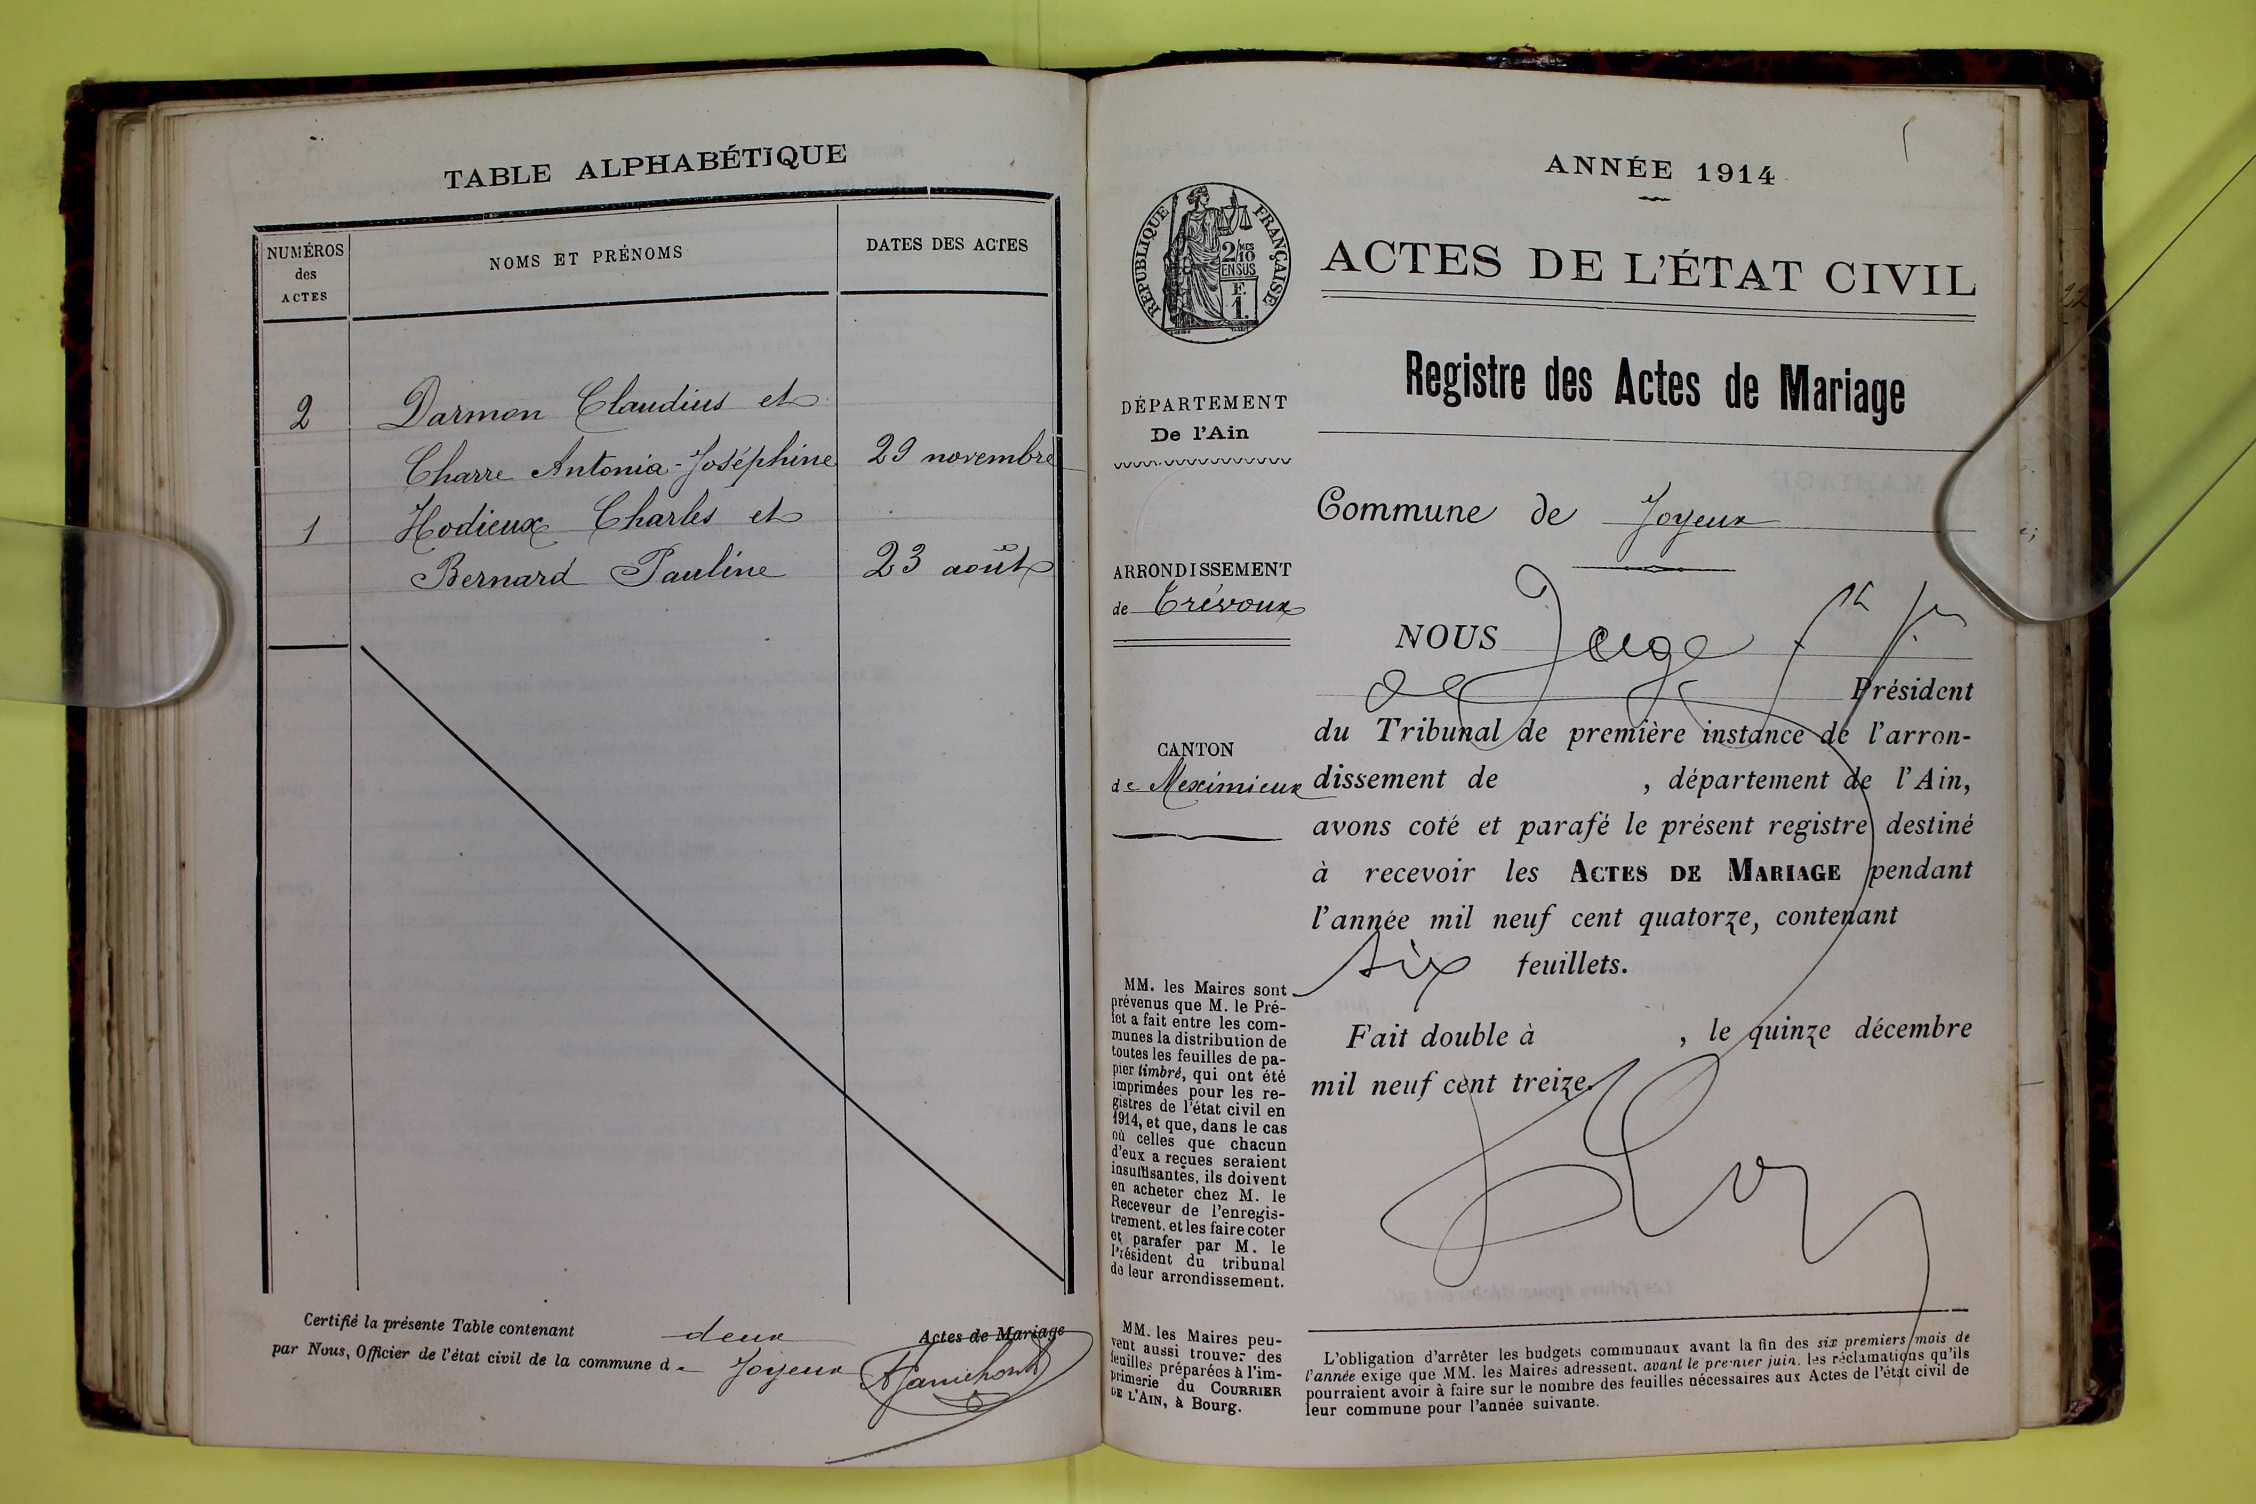 TABLE ALPHABÉTIQUE
NUMÉROS
des
ACTES
NOMS ET PRÉNOMS
DATES DES ACTES
2 Darmon Claudius et
Charre Antonia-Joséphine 29 novembre
1 Hodieux Charles et
Bernard Pauline 23 août
Certifié la présente Table contenant deux Actes de Mariage
par Nous, Officier de l'état civil de la commune de Joyeux
1
ANNÉE 1914
RÉPUBLIQUE FRANÇAISE
2/10 MES
EN SUS
F.
1.
ACTES DE L'ÉTAT CIVIL
Registre des Actes de Mariage
DÉPARTEMENT
De l'Ain
ARRONDISSEMENT
de Trévoux
CANTON
de Meximieux
MM. les Maires sont
prévenus que M. le Pré-
fet a fait entre les com-
munes la distribution de
toutes les feuilles de pa-
pier timbré, qui ont été
imprimées pour les re-
gistres de l'état civil en
1914, et que, dans le cas
où celles que chacun
d'eux a reçues seraient
insuffisantes, ils doivent
en acheter chez M. le
Receveur de l'enregis-
trement, et les faire coter
et parafer par M. le
Président du tribunal
de leur arrondissement.
MM. les Maires peu-
vent aussi trouver des
feuilles préparées à l'im-
primerie du COURRIER
DE L'AIN, à Bourg.
Commune de Joyeux
NOUS Juge
Président
du Tribunal de première instance de l'arron-
dissement de , département de l'Ain,
avons coté et parafé le présent registre destiné
à recevoir les ACTES DE MARIAGE pendant
l'année mil neuf cent quatorze, contenant
six feuillets.
Fait double à , le quinze décembre
mil neuf cent treize.
L'obligation d'arrêter les budgets communaux avant la fin des six premiers mois de
l'année exige que MM. les Maires adressent, avant le premier juin, les réclamations qu'ils
pourraient avoir à faire sur le nombre des feuilles nécessaires aux Actes de l'état civil de
leur commune pour l'année suivante.